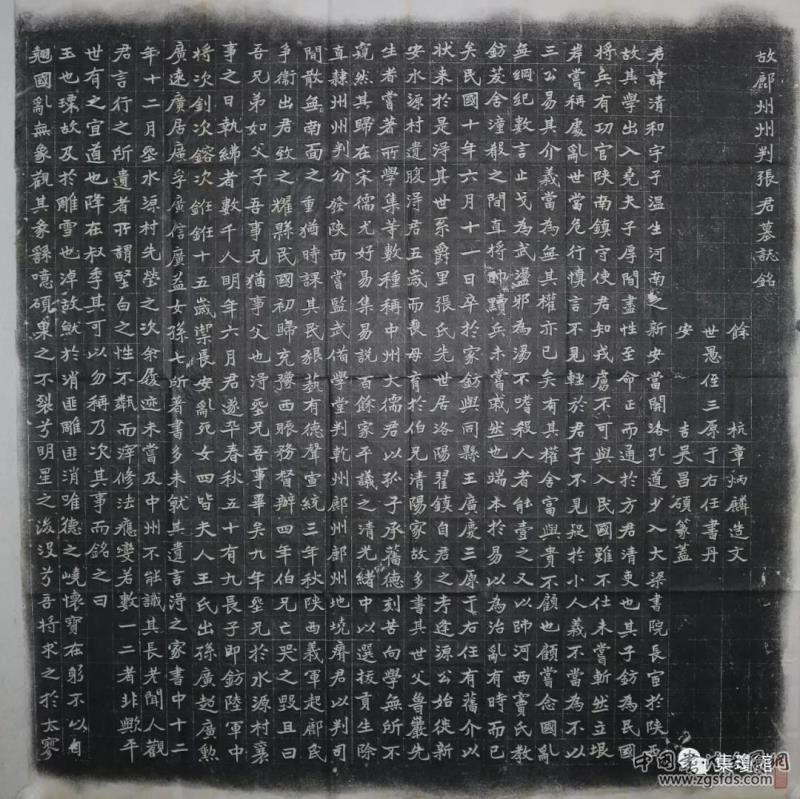 故鄜州州判張君墓誌銘
餘杭章炳麟造文
世愚侄三原于右任書丹
安吉吳昌碩篆蓋
君諱清和字子溫生河南之新安當關洛孔道少入大梁書院長官於陝西
故其學出入堯夫子厚間盡性至命正而通於方君清吏也其子鈁為民國
將兵有功官陝南鎮守使君知戎虜不可與入民國雖不仕未嘗斬然立垠
岸嘗稱處亂世當危行慎言不見輕於君子不見疑於小人義不當為不以
三公易其介義當為無其權亦已矣有其權舍富與貴不顧也顧嘗念國亂
無綱紀數言止戈為武盪邪為湯不嗜殺人者能壹之又以師河西竇氏教
鈁茇舍潼殽之間直將帥黷兵未嘗戚然也端本於易以為治亂有時而已
矣民國十年六月十一日卒於家鈁與同縣王廣慶三原于右任有舊介以
狀來於是得其世系爵里張氏先世居洛陽翟鎮自君之考逢源公始徙新
安水源村遺腹得君五歲而喪母育於伯兄清陽家故多書其世父魯巖先
生者嘗著所學集等數種稱中州大儒君以孤子承舊德刻苦向學無所不
窺然其歸在宋儒尤好易集易說百餘家平議之清光緒中以選拔貢生除
直隸州州判分發陝西嘗監武備學堂判乾州鄜州鄜州地墝瘠君以判司
閒散無南面之重猶時課其民樹藝有德聲宣統三年秋陝西義軍起鄜民
爭衛出君致之耀縣民國初歸充豫西賑務督辦四年伯兄亡哭之毀且曰
吾兄弟如父子吾事兄猶事父也得葬兄吾事畢矣九年葬兄於水源村襄
事之日執紼者數千人明年六月君遂卒春秋五十有九長子即鈁陸軍中
將次釗次鎔次銋銋十五歲禦長安亂死女四皆夫人王氏出孫廣超廣勳
廣遠廣居廣孚廣信廣益女孫七所著書多未就其遺言得之家書中十二
年十二月葬水源村先塋之次余屐跡未嘗及中州不能識其長老聞人觀
君言行之所遺者所謂堅白之性不甐而滓修法應變若數一二者非歟平
世有之宜道也降在叔季其可以勿稱乃次其事而銘之曰
玉也瑈故及於雕雪也淖故鮌於消匪雕匪消唯德之嶢懷寶在躬不以自
翹國亂無象觀其彖繇噫碩果之不裂兮明星之後沒兮吾將求之於太寥
集瓊館
www.zgsfds.com